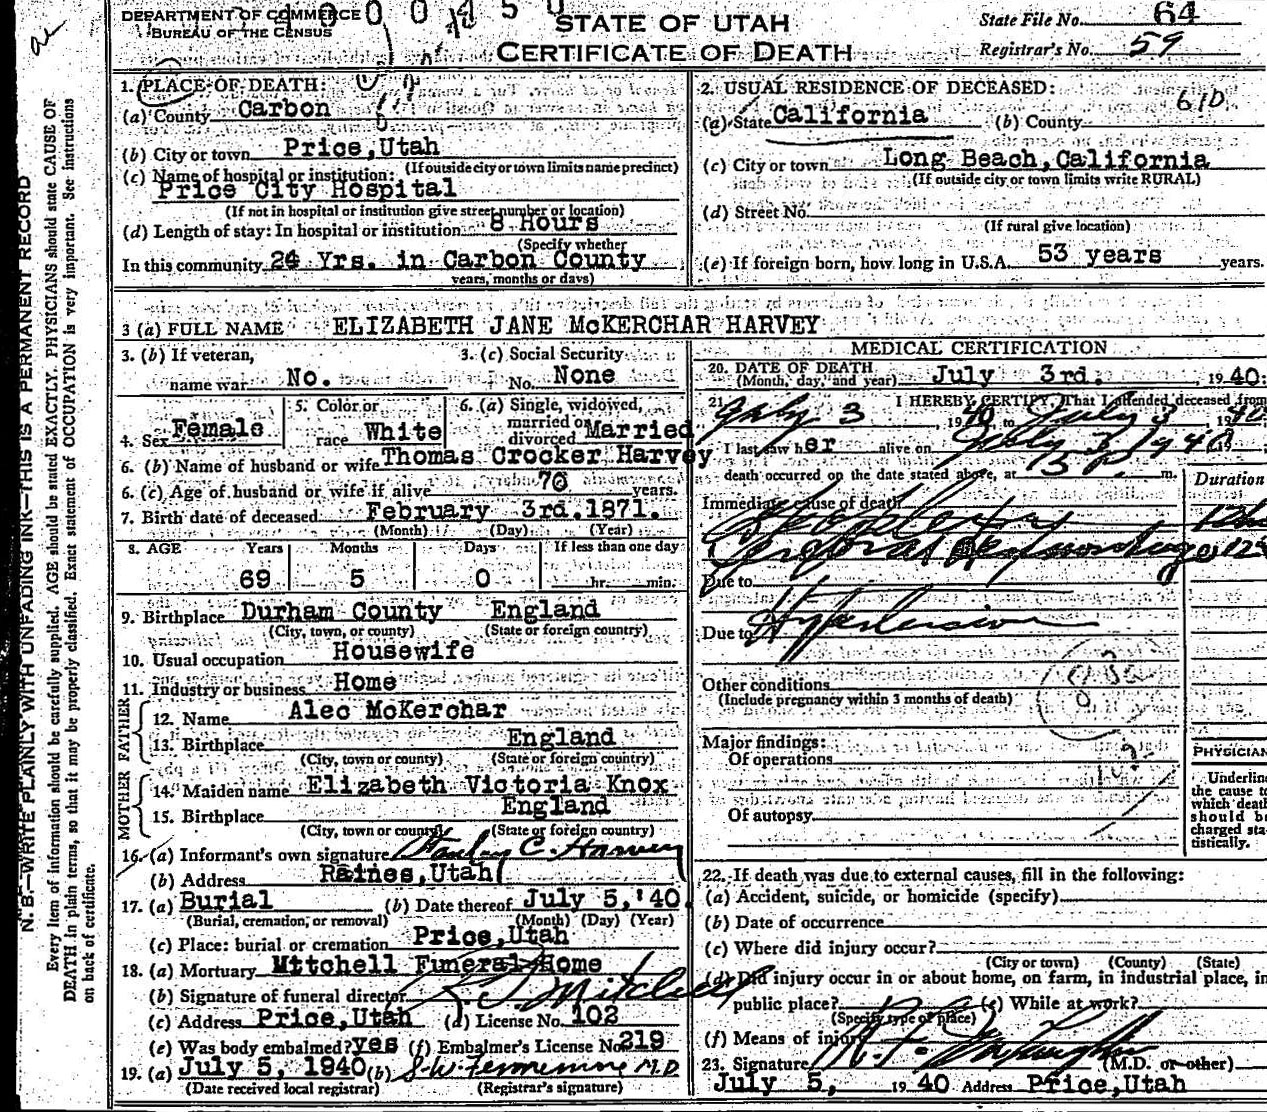 DEPARTMENT OF COMMERCE
BUREAU OF THE CENSUS
STATE OF UTAH
CERTIFICATE OF DEATH
State File No. 64
Registrar's No. 59
N. B.—WRITE PLAINLY WITH UNFADING INK—THIS IS A PERMANENT RECORD
Every item of information should be carefully supplied. AGE should be stated EXACTLY. PHYSICIANS should state CAUSE OF
DEATH in plain terms, so that it may be properly classified. Exact statement of OCCUPATION is very important. See instructions
on back of certificate.
1. PLACE OF DEATH:
(a) County Carbon
(b) City or town Price, Utah
(If outside city or town limits name precinct)
(c) Name of hospital or institution:
Price City Hospital
(If not in hospital or institution give street number or location)
(d) Length of stay: In hospital or institution 8 Hours
(Specify whether
In this community 24 Yrs. in Carbon County
years, months or days)
2. USUAL RESIDENCE OF DECEASED:
610
(a) State California (b) County
(c) City or town Long Beach, California
(If outside city or town limits write RURAL)
(d) Street No.
(If rural give location)
(e) If foreign born, how long in U.S.A. 53 years years.
3 (a) FULL NAME ELIZABETH JANE McKERCHAR HARVEY
3. (b) If veteran,
name war No.
3. (c) Social Security
No. None
4. Sex Female
5. Color or
race White
6. (a) Single, widowed,
married or
divorced Married
6. (b) Name of husband or wife Thomas Crocker Harvey
6. (c) Age of husband or wife if alive 70 years.
7. Birth date of deceased February 3rd. 1871.
(Month) (Day) (Year)
8. AGE Years Months Days If less than one day
69 5 0 hr. min.
9. Birthplace Durham County England
(City, town, or county) (State or foreign country)
10. Usual occupation Housewife
11. Industry or business Home
FATHER
12. Name Alec McKerchar
13. Birthplace England
(City, town or county) (State or foreign country)
MOTHER
14. Maiden name Elizabeth Victoria Knox
15. Birthplace England
(City, town or county) (State or foreign country)
16. (a) Informant's own signature C. Harvey
(b) Address Raines, Utah
17. (a) Burial (b) Date thereof July 5, '40.
(Burial, cremation, or removal) (Month) (Day) (Year)
(c) Place: burial or cremation Price, Utah
18. (a) Mortuary Mitchell Funeral Home
(b) Signature of funeral director Mitchell
(c) Address Price, Utah (d) License No. 102
(e) Was body embalmed? yes (f) Embalmer's License No. 219
19. (a) July 5, 1940 (b) M.D
(Date received local registrar) (Registrar's signature)
MEDICAL CERTIFICATION
20. DATE OF DEATH
(Month, day, and year) July 3rd. , 1940:
21. I HEREBY CERTIFY, That I attended deceased from
July 3, 1940 to July 3, 1940
I last saw her alive on July 3, 1940
death occurred on the date stated above, at m.
Duration
Immediate cause of death
Due to
Due to Hypertension
Other conditions
(Include pregnancy within 3 months of death)
Major findings:
Of operations
Of autopsy
PHYSICIAN
Underline
the cause to
which death
should be
charged sta-
tistically.
22. If death was due to external causes, fill in the following:
(a) Accident, suicide, or homicide (specify)
(b) Date of occurrence
(c) Where did injury occur?
(City or town) (County) (State)
(d) Did injury occur in or about home, on farm, in industrial place, in
public place? (e) While at work?
(Specify type of place)
(f) Means of injury
23. Signature (M.D. or other)
July 5, 1940 Address Price, Utah